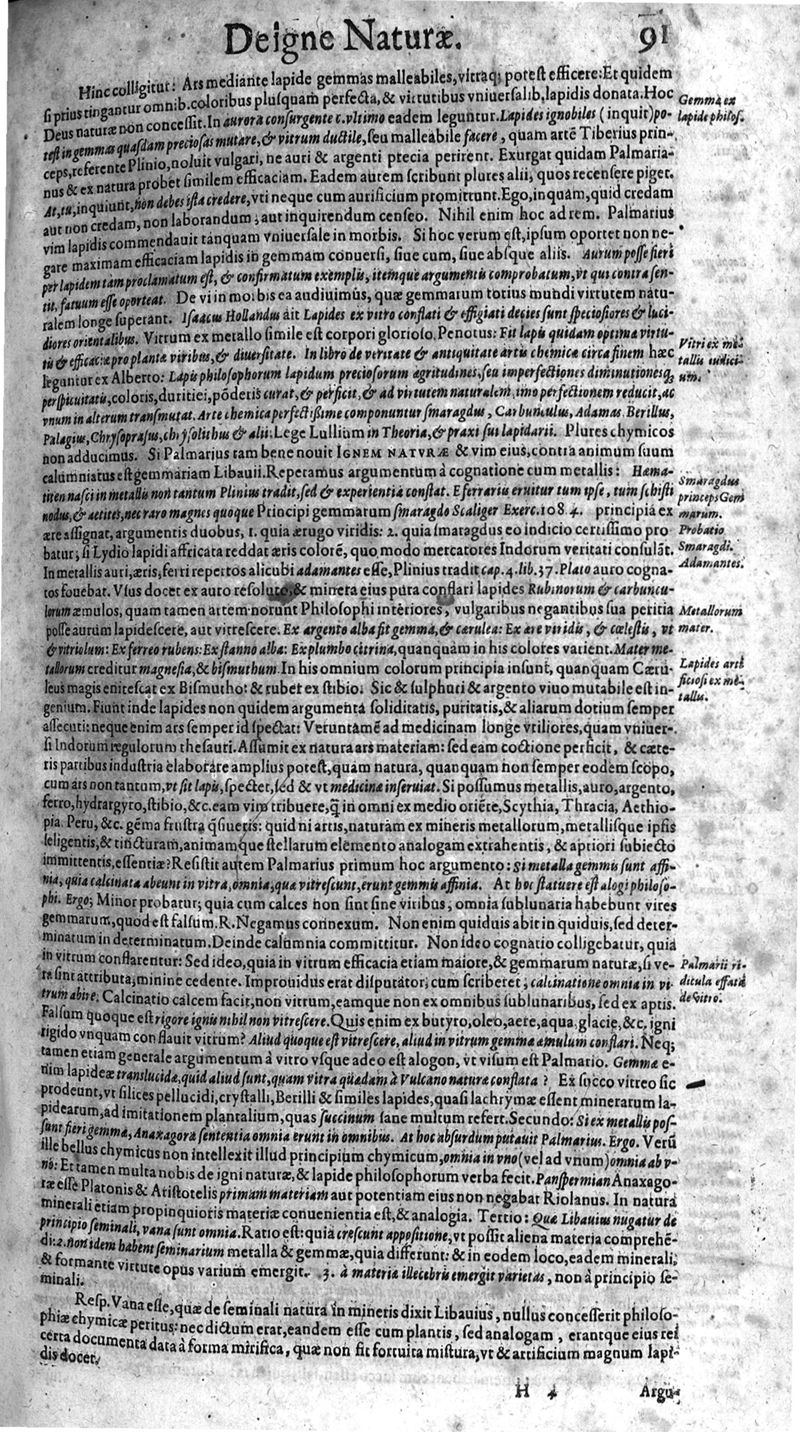 De igne Naturæ. 91
Hinc colligitur: Ars mediante lapide gemmas malleabiles, vltraq; potest efficere: Et quidem
si prius tingantur omnib. coloribus plusquam perfecta, & virtutibus vniuersalib. lapidis donata. Hoc
Deus naturæ non concessit. In aurora consurgente c. vltimo eadem leguntur. Lapides ignobiles (inquit) po-
test in gemmas quasdam preciosas mutare, & vitrum ductile, seu malleabile facere, quam artē Tiberius prin-
ceps, referente Plinio, noluit vulgari, ne auri & argenti precia perirent. Exurgat quidam Palmaria-
nus & ex natura probet similem efficaciam. Eadem autem scribunt plures alii, quos recensere piget.
At, tu, inquiunt, non debes ista credere, vti neque cum aurificium promittunt. Ego, inquam, quid credam
aut non credam, non laborandum, aut inquirendum censeo. Nihil enim hoc ad rem. Palmarius
vim lapidis commendauit tanquam vniuersale in morbis. Si hoc verum est, ipsum oportet non ne-
gare maximam efficaciam lapidis in gemmam conuersi, siue cum, siue absque aliis. Aurum posse fieri
per lapidem tam proclamatum est, & confirmatum exemplis, itemque argumentis comprobatum, vt qui contra sen-
tit, fatuum esse oporteat. De vi in morbis ea audiuimus, quæ gemmarum totius mundi virtutem natu-
ralem longe superant. Isaacus Hollandus ait Lapides ex vitro conflati & effigiati decies sunt speciosiores & luci-
diores orientalibus. Vitrum ex metallo simile est corpori glorioso. Penotus: Fit lapis quidam optima virtu-
tis & efficaciæ pro plantæ viribus, & diuersitate. In libro de veritate & antiquitate artis chemicæ circa finem hæc
leguntur ex Alberto: Lapis philosophorum lapidum preciosorum ægritudines, seu imperfectiones diminutionesq;
perspicuitatis, coloris, duritiei, pōderis curat, & perficit, & ad virtutem naturalem, imo perfectionem reducit, ac
vnum in alterum transmutat. Arte chemica perfectißime componuntur smaragdus, Carbunculus, Adamas. Berillus,
Palagius, Chrysoprasus, chrysolithus & alii. Lege Lullium in Theoria, & praxi sui lapidarii. Plures chymicos
non adducimus. Si Palmarius tam bene nouit IGNEM NATVRÆ & vim eius, contra animum suum
calumniatus est gemmariam Libauii. Reperamus argumentum à cognatione cum metallis: Hæma-
titen nasci in metallis non tantum Plinius tradit, sed & experientia constat. E ferrariis eruitur tum ipse, tum schisti
nodus, & aetites, nec raro magnes quoque Principi gemmarum smaragdo Scaliger Exerc. 108. 4. principia ex
ære assignat, argumentis duobus, 1. quia ærugo viridis: 2. quia smaragdus eo indicio certissimo pro
batur, si Lydio lapidi affricata reddat æris colorē, quo modo mercatores Indorum veritati consulāt.
In metallis auri, æris, ferri repertos alicubi adamantes esse, Plinius tradit cap. 4. lib. 37. Plato auro cogna-
tos fouebat. Vsus docet ex auro resoluto, & minera eius pura conflari lapides Rubinorum & carbuncu-
lorum æmulos, quam tamen artem norunt Philosophi interiores, vulgaribus negantibus sua peritia
posse aurum lapidescere, aut vitrescere. Ex argento alba fit gemma, & cærulea: Ex ære viridis, & cœlestis, vt
& vitriolum: Ex ferreo rubens: Ex stanno alba: Ex plumbo citrina, quanquam in his colores varient. Mater me-
tallorum creditur magnesia, & bismuthum. In his omnium colorum principia insunt, quanquam Cæru-
leus magis enitescat ex Bismutho: & ruber ex stibio. Sic & sulphuri & argento viuo mutabile est in-
genium. Fiunt inde lapides non quidem argumenta soliditatis, puritatis, & aliarum dotium semper
assecuti: neque enim ars semper id spectat: Veruntamē ad medicinam longe vtiliores, quam vniuer-
si Indorum regulorum thesauri. Assumit ex natura ars materiam: sed eam coctione perficit, & cæte-
ris partibus industria elaborare amplius potest, quam natura, quanquam non semper eodem scopo,
cum ars non tantum, vt sit lapis, spectet, sed & vt medicinæ inseruiat. Si possumus metallis, auro, argento,
ferro, hydrargyro, stibio, &c. eam vim tribuere, q̄ in omni ex medio oriēte, Scythia, Thracia, Aethio-
pia, Peru, &c. gēma frustra q̄siueris: quid ni artis, naturam ex mineris metallorum, metallisque ipsis
seligentis, & tincturam, animamque stellarum elemento analogam extrahentis, & aptiori subiecto
immittentis, essentiæ? Resistit autem Palmarius primum hoc argumento: si metalla gemmis sunt affi-
nia, quia calcinata abeunt in vitra, omnia, qua vitrescunt, erunt gemmis affinia. At hoc statuere est alogi philoso-
phi. Ergo; Minor probatur; quia cum calces non sint sine viribus; omnia sublunaria habebunt vires
gemmarum, quod est falsum. R. Negamus connexum. Non enim quiduis abit in quiduis, sed deter-
minatum in determinatum. Deinde calumnia committitur. Non ideo cognatio colligebatur, quia
in vitrum conflarentur: Sed ideo, quia in vitrum efficacia etiam maiore, & gemmarum naturæ, si ve-
ra sint attributa, minine cedente. Improuidus erat disputator, cum scriberet, calcinatione omnia in vi-
trum abire. Calcinatio calcem facit, non vitrum, eamque non ex omnibus sublunaribus, sed ex aptis.
Falsum quoque est rigore ignis nihil non vitrescere. Quis enim ex butyro, oleo, aere, aqua, glacie, &c. igni
rigido vnquam conflauit vitrum? Aliud quoque est vitrescere, aliud in vitrum gemmæ æmulum conflari. Neq;
tamen etiam generale argumentum à vitro vsque adeo est alogon, vt visum est Palmario. Gemmæ e-
nim lapideæ translucidæ, quid aliud sunt, quam vitra quædam à Vulcano naturæ conflata? Ex succo vitreo sic
prodeunt, vt silices pellucidi, crystalli, Berilli & similes lapides, quasi lachrymæ essent minerarum la-
pidearum, ad imitationem plantalium, quas succinum sane multum refert. Secundo: Si ex metallis pos-
sunt fieri gemmæ, Anaxagoræ sententia omnia erunt in omnibus. At hoc absurdum putauit Palmarius. Ergo. Verū
ille bellus chymicus non intellexit illud principium chymicum, omnia in vno (vel ad vnum) omnia ab v-
no: Et tamen multa nobis de igni naturæ, & lapide philosophorum verba fecit. Panspermian Anaxago-
ræ esse Platonis & Aristotelis primam materiam aut potentiam eius non negabat Riolanus. In natura
minerali etiam propinquioris materiæ conuenientia est, & analogia. Tertio: Quæ Libauius nugatur de
principio seminali, vana sunt omnia. Ratio est: quia crescunt appositione, vt possit aliena materia comprehē-
di: 2. non idem habent seminarium metalla & gemmæ, quia differunt: & in eodem loco, eadem minerali,
& formante virtute opus varium emergit. 3. à materiæ illecebris emergit varietas, non à principio se-
minali.
Resp. Vana esse, quæ de seminali natura in mineris dixit Libauius, nullus concesserit philoso-
phiæ chymicæ peritus: nec dictum erat, eandem esse cum plantis, sed analogam, erantque eius rei
certa documenta data à forma mirifica, quæ non fit fortuita mistura, vt & artificium magnum lapi-
dis docet.
H 4 Argu-
Gemmæ ex
lapide philos.
Vitri ex me-
tallis iudici-
um.
Smaragdus
princeps Gem
marum.
Probatio
Smaragdi.
Adamantes.
Metallorum
mater.
Lapides arti
ficiosi ex me-
tallis.
Palmarii ri-
dicula effata
de vitro.